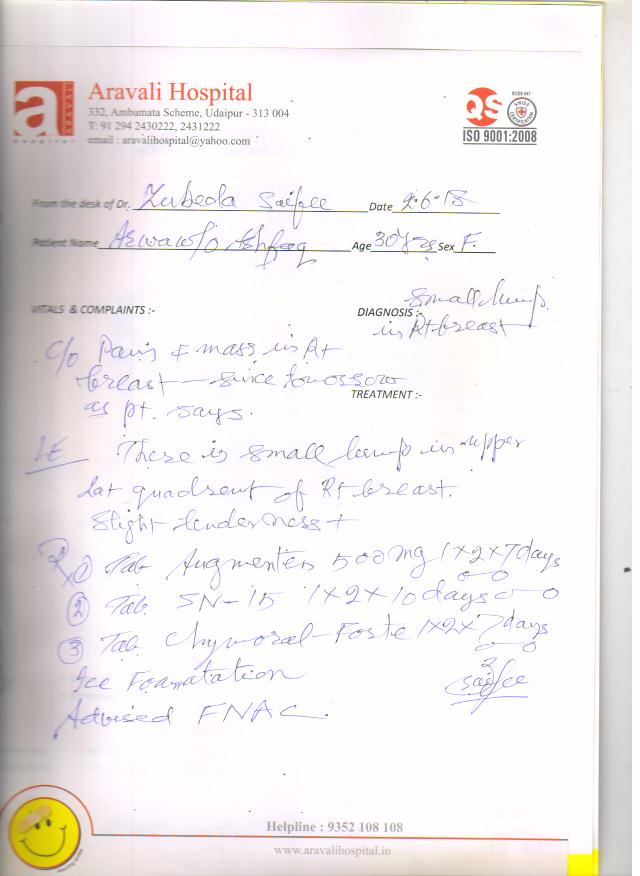 a ARAVALI
hospital
Aravali Hospital
332, Ambamata Scheme, Udaipur - 313 004
T: 91 294 2430222, 2431222
email : aravalihospital@yahoo.com
QS
SCES 047
SWISS CERTIFICATION
ISO 9001:2008
From the desk of Dr. Zubeda Saifee Date 2.6.18
Patient Name Aswa w/o Ashfaq Age 30yrs Sex F.
VITALS & COMPLAINTS :-
DIAGNOSIS :- Small lump
in Rt breast
C/o Pain & mass in Rt
breast — since tomossow
as pt. says.
TREATMENT :-
LE There is small lump in upper
Lat quadrent of Rt breast.
Slight tenderness +
Rx ① Tab Augmenten 500mg 1×2×7days
② Tab. SN-15 1×2×10days
③ Tab. Chymoral-Foste 1×2×7days
Ice Fomatation
Saifee
Advised FNAC.
Helpline : 9352 108 108
www.aravalihospital.in